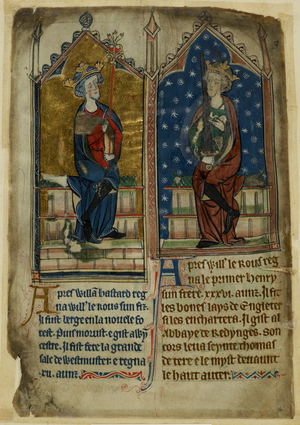 Apres willā bastard reg
na will le Rous sun fiz
il fust berse en la nouele fo
rest. puis morust e gist a wȳ
cestre. Il fist fere la grande
sale de Westmuster. e regna
.xii. aunz.
Apres will le Rous reg
na le primer henry
sun frere. xxxvi. aunz. Il fit
les bone lays de Engleter
e les enchartera. Il gist a
labbaye de Redynges. son
cors le ua seynte thomas
de tere e le myst deuaunt
le haut auter.